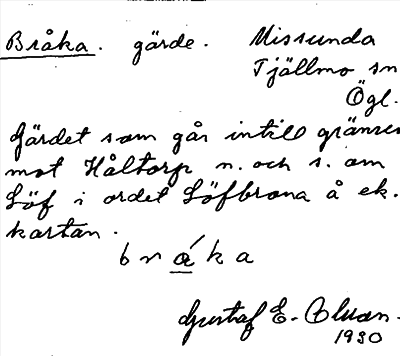 Bråka. gärde. Missunda
Tjällmo sn
Ögl.
Gärdet som går intill gränsen
mot Håltorp n. och s. om
Löf i ordet Löfbrona å ek.
kartan.
b r a ́ k a
Gustaf E.
1930